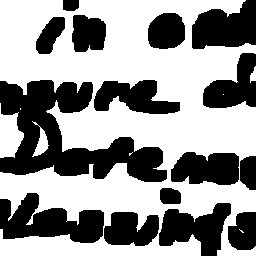 in ord
nsure do
Defens
lessings